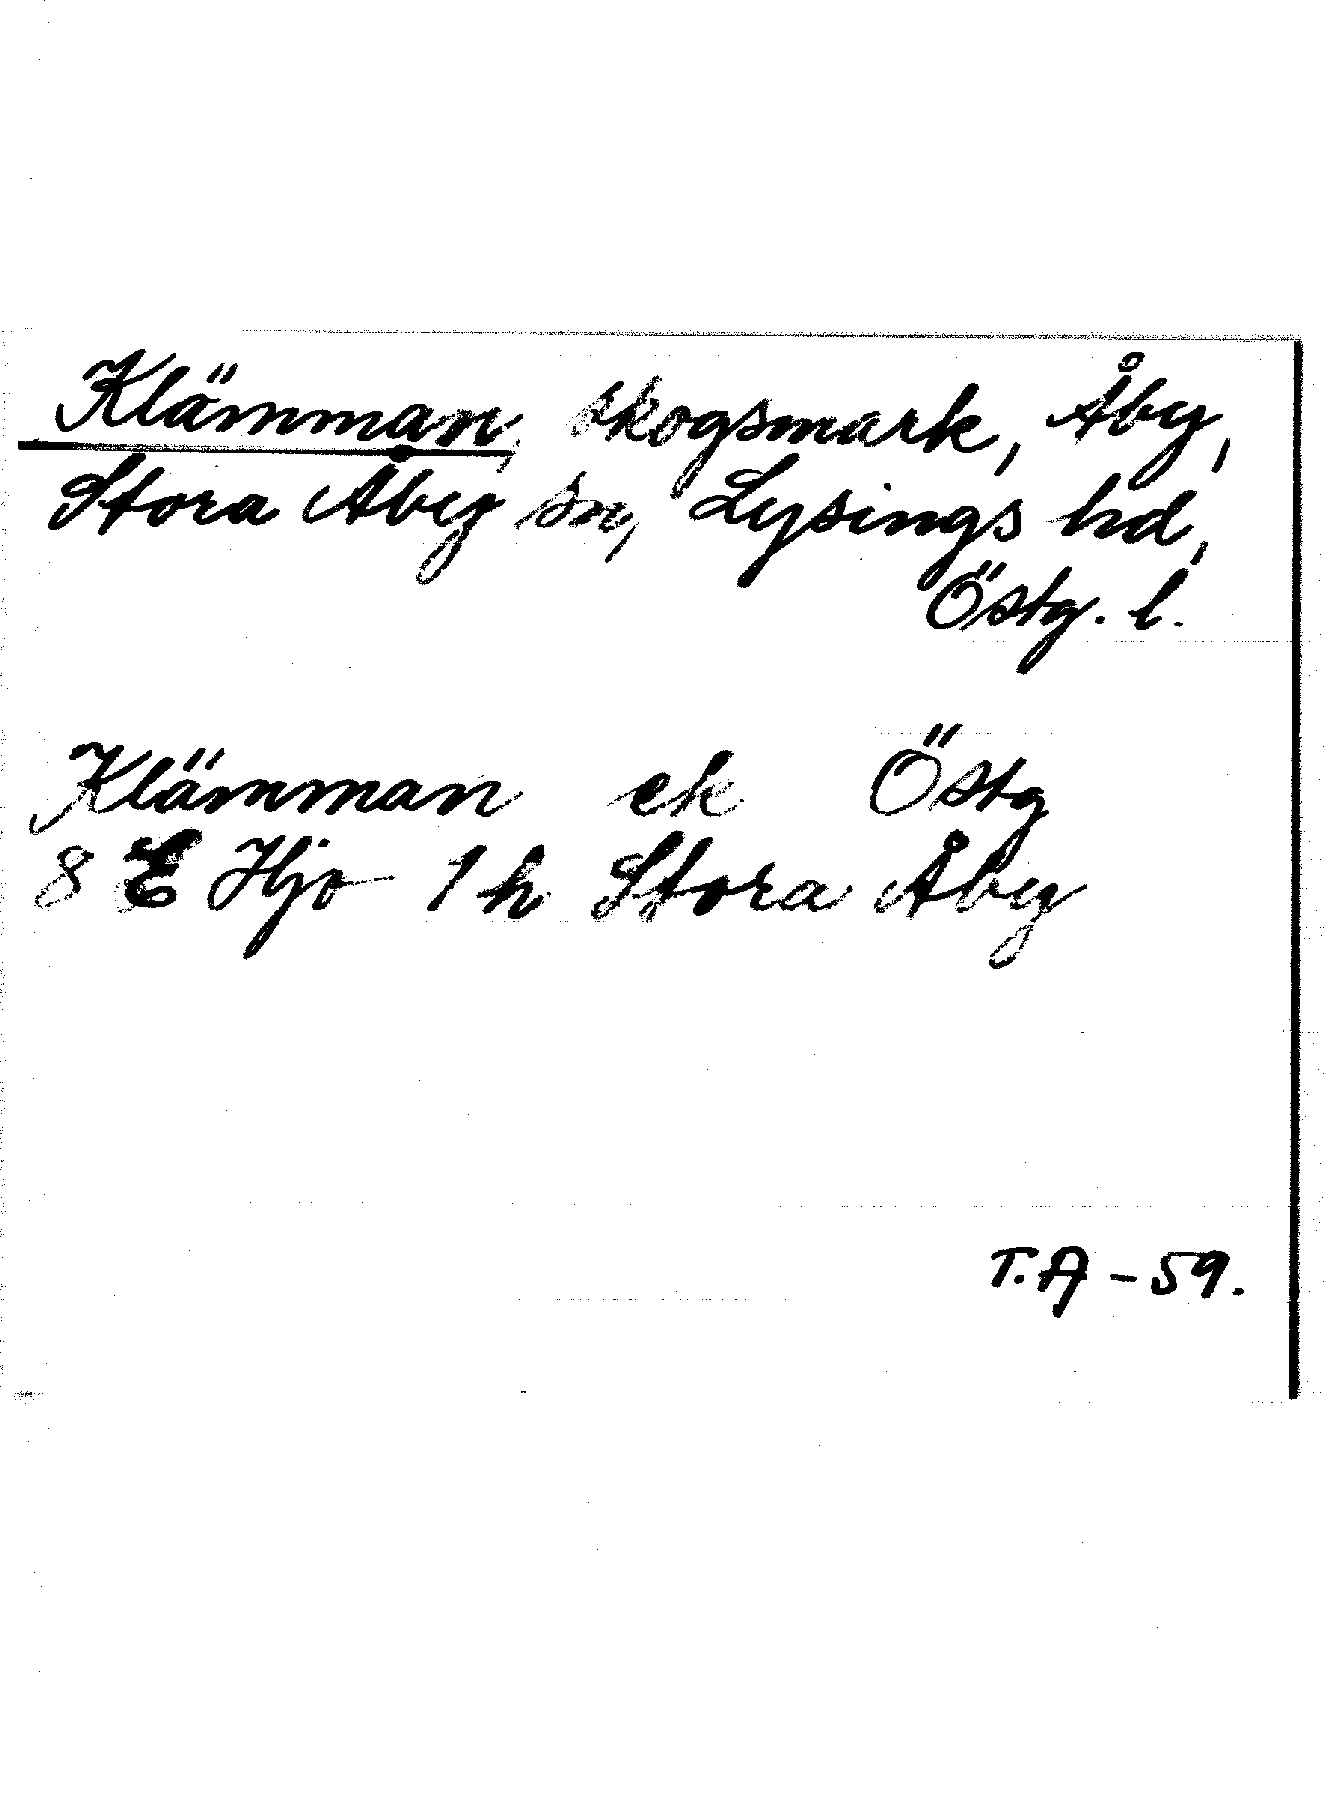 Klämman, skogsmark, Åby,
Stora Åby sn, Lysings hd,
Östg. l.
Klämman ek Östg
8 E Hjo 1 h Stora Åby
T.A - 59.